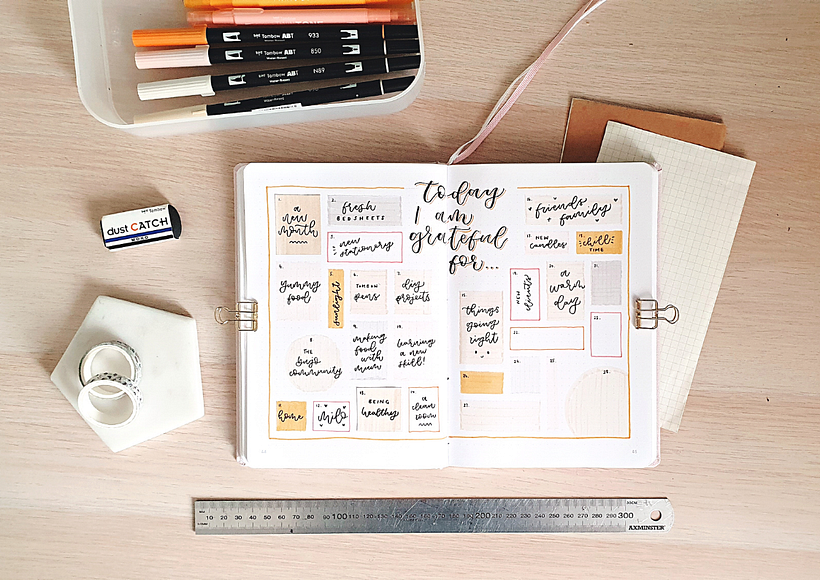 Tombow ABT 933
Tombow ABT 850
Tombow ABT N89
Tombow
dust CATCH
MONO
today
I am
grateful
for...
1.
a
new
month
2.
fresh
BEDSHEETS
3.
new
stationary
4.
yummy
food
5.
sunlight
6.
TOMBOW
pens
7.
diy
projects
8.
THE
bujo
community
9.
making
food
with
mum
10.
learning
a new
skill!
11.
home
12.
Milo
13.
BEING
healthy
14.
a
clean
room
15.
things
going
right
16.
friends
+ family
17. NEW
candles
18.
chill
TIME
19.
NEW
clients
20.
a
warm
day
21.
22.
23.
24.
25.
26.
27.
28.
10 20 30 40 50 60 70 80 90 100 110 120 130 140 150 160 170 180 190 200 210 220 230 240 250 260 270 280 290 300
AXMINSTER